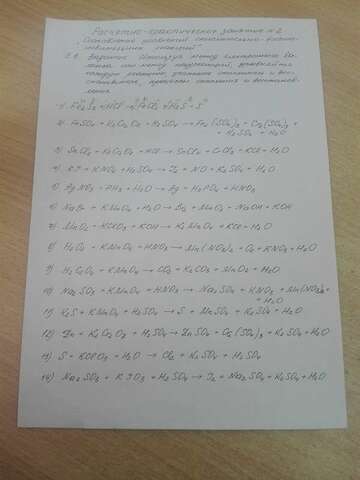 Расчетно-практическое занятие №2
"Составление уравнений окислительно-восста-
новительных реакций"
2.1 Задание: Используя метод электронного ба-
ланса или метод полуреакций, уравняйте
каждую реакцию, укажите окислитель и вос-
становитель, процессы окисления и восстанов-
ления
2) FeSO4 + K2Cr2O7 + H2SO4 → Fe2(SO4)3 + Cr2(SO4)3 +
+ K2SO4 + H2O
3) SnCl2 + K2Cr2O7 + HCl → SnCl4 + CrCl3 + KCl + H2O
4) KI + KNO2 + H2SO4 → I2 + NO + K2SO4 + H2O
5) AgNO3 + PH3 + H2O → Ag + H3PO4 + HNO3
6) NaBr + KMnO4 + H2O → Br2 + MnO2 + NaOH + KOH
7) MnO2 + KClO3 + KOH → K2MnO4 + KCl + H2O
8) H2O2 + KMnO4 + HNO3 → Mn(NO3)2 + O2 + KNO3 + H2O
9) H2C2O4 + KMnO4 → CO2 + K2CO3 + MnO2 + H2O
10) Na2SO3 + KMnO4 + HNO3 → Na2SO4 + KNO3 + Mn(NO3)2 +
+ H2O
11) K2S + KMnO4 + H2SO4 → S + MnSO4 + K2SO4 + H2O
12) Zn + K2Cr2O7 + H2SO4 → ZnSO4 + Cr2(SO4)3 + K2SO4 + H2O
13) S + KClO3 + H2O → Cl2 + K2SO4 + H2SO4
14) Na2SO3 + KIO3 + H2SO4 → I2 + Na2SO4 + K2SO4 + H2O